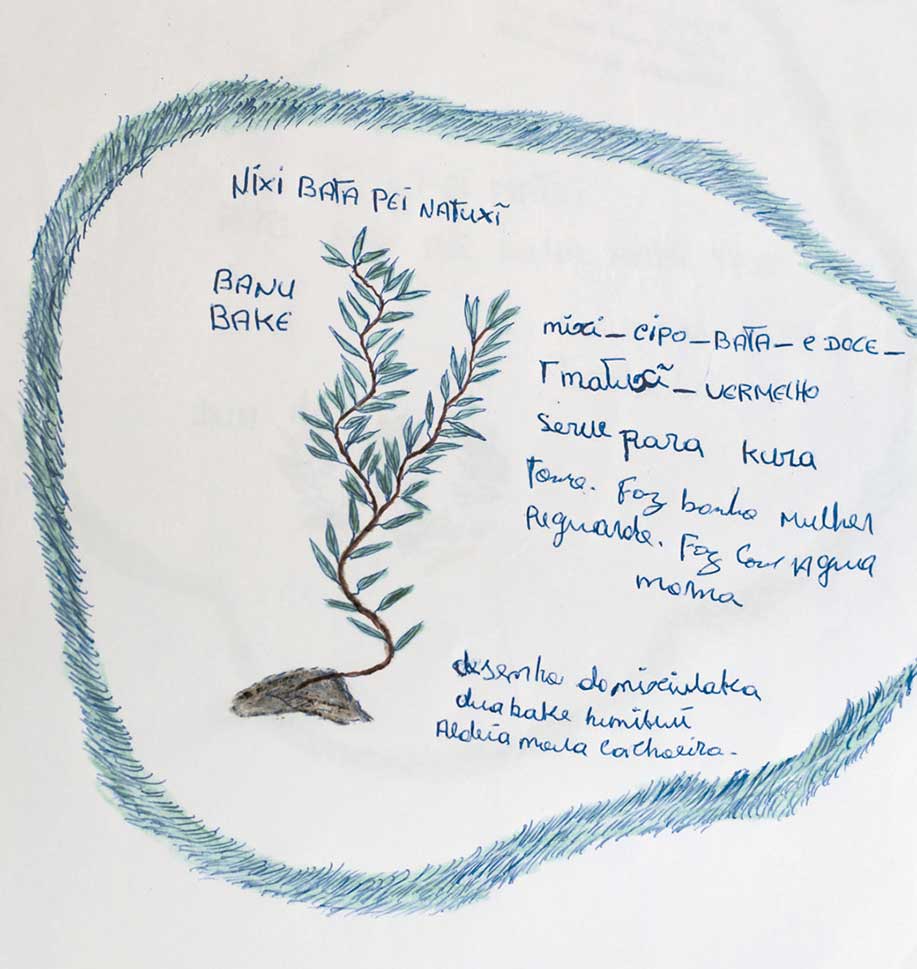 NIXI BATA PEI NATUXĨ
BANU
BAKE
nixi - CIPO - BATA - e DOCE -
matuxĩ - VERMELHO
serve para kura
Faz banho mulher
Reguarda. Faz com Agua
morna
desenho do
dua bake hunikuĩ
Aldeia nova Cachoeira.